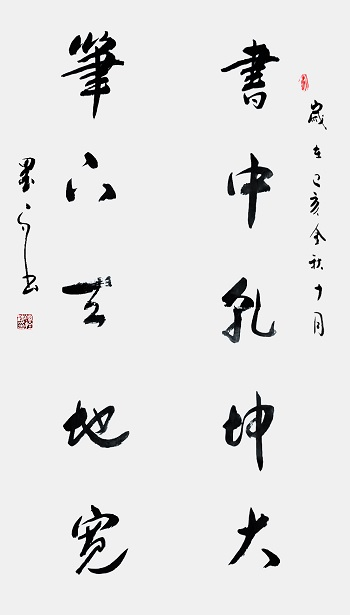 歲在己亥金秋十月
書中乾坤大
筆下天地寬
墨书